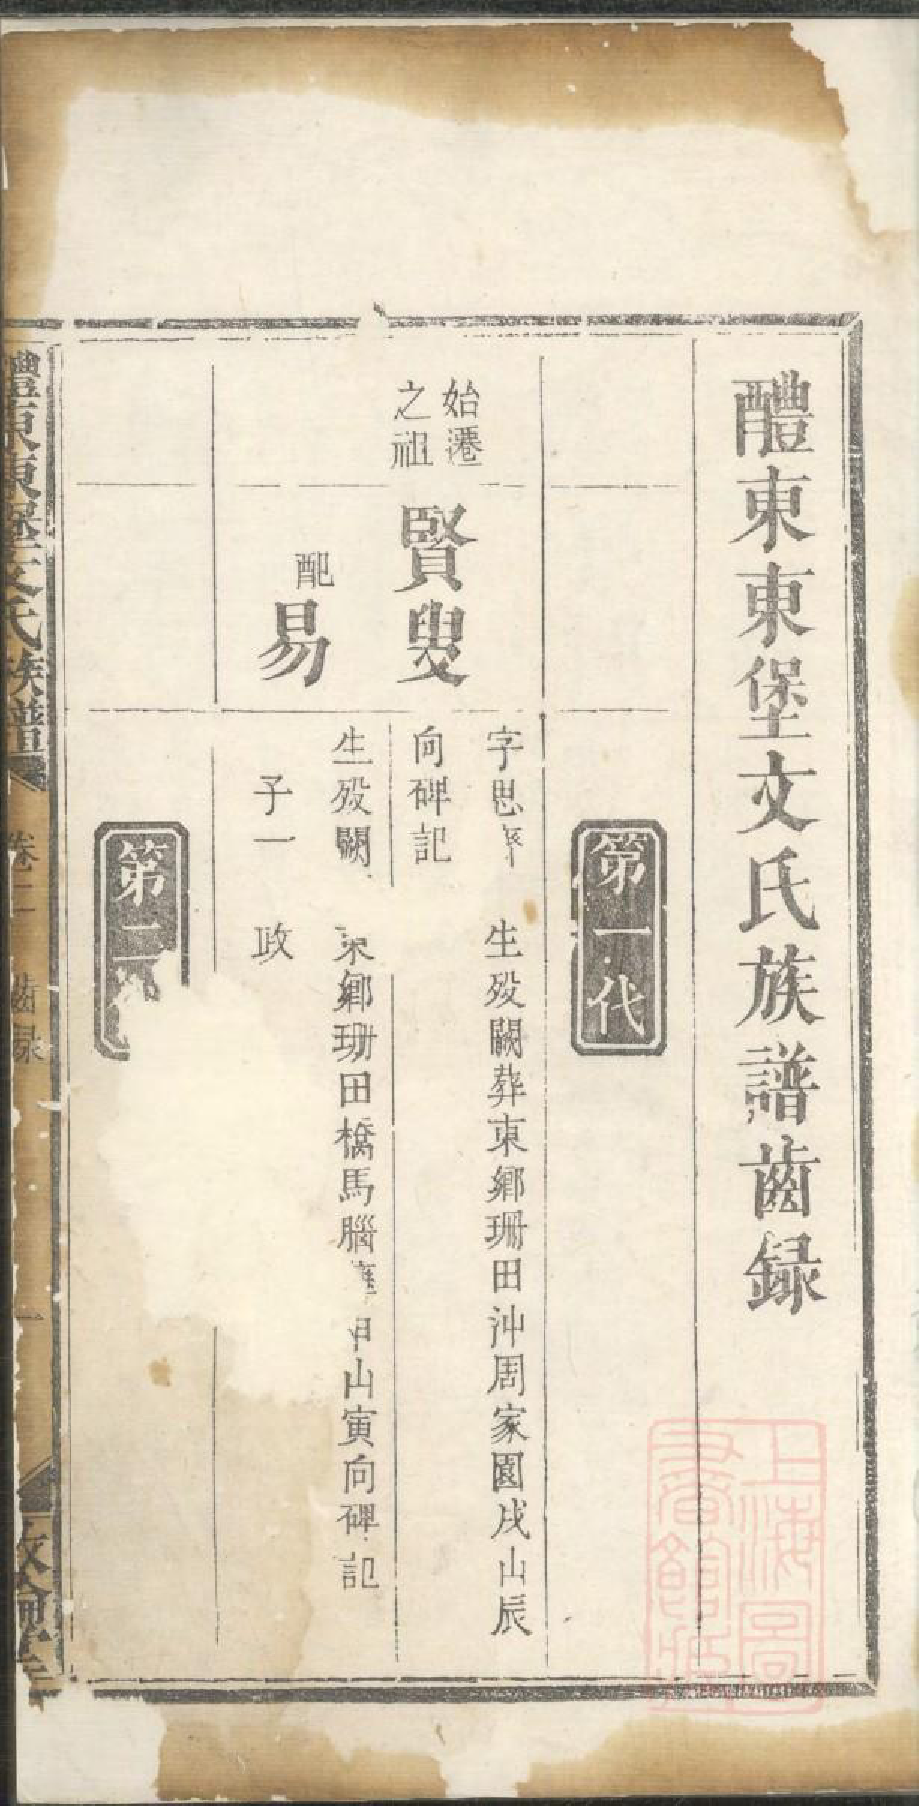 醴東東堡文氏族譜齒録
第一代
始遷
之祖
賢叟
字思 生歿闕葬東鄉珊田沖周家園戌山辰
向碑記
配
易
生歿闕 鄉珊田橋馬腦 山寅向碑記
子一 政
第二
醴東東堡文氏族譜 卷二 齒録 一
上海圖
書館藏